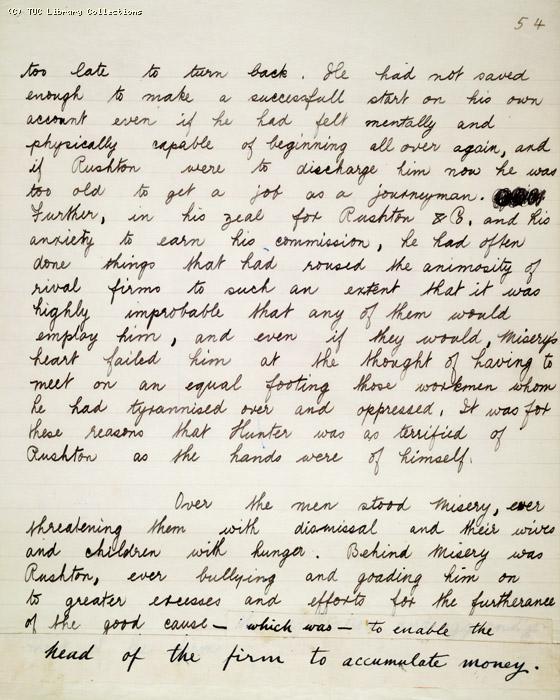 (C) TUC Library Collections
54
too late to turn back. He had not saved
enough to make a successfull start on his own
account even if he had felt mentally and
physically capable of beginning all over again, and
if Rushton were to discharge him now he was
too old to get a job as a journeyman.
Further, in his zeal for Rushton & Co. and his
anxiety to earn his commission, he had often
done things that had roused the animosity of
rival firms to such an extent that it was
highly improbable that any of them would
employ him, and even if they would, Misery's
heart failed him at the thought of having to
meet on an equal footing those workmen whom
he had tyrannised over and oppressed. It was for
these reasons that Hunter was as terrified of
Rushton as the hands were of himself.
Over the men stood Misery, ever
threatening them with dismissal and their wives
and children with hunger. Behind Misery was
Rushton, ever bullying and goading him on
to greater excesses and efforts for the furtherance
of the good cause — which was — to enable the
head of the firm to accumulate money.